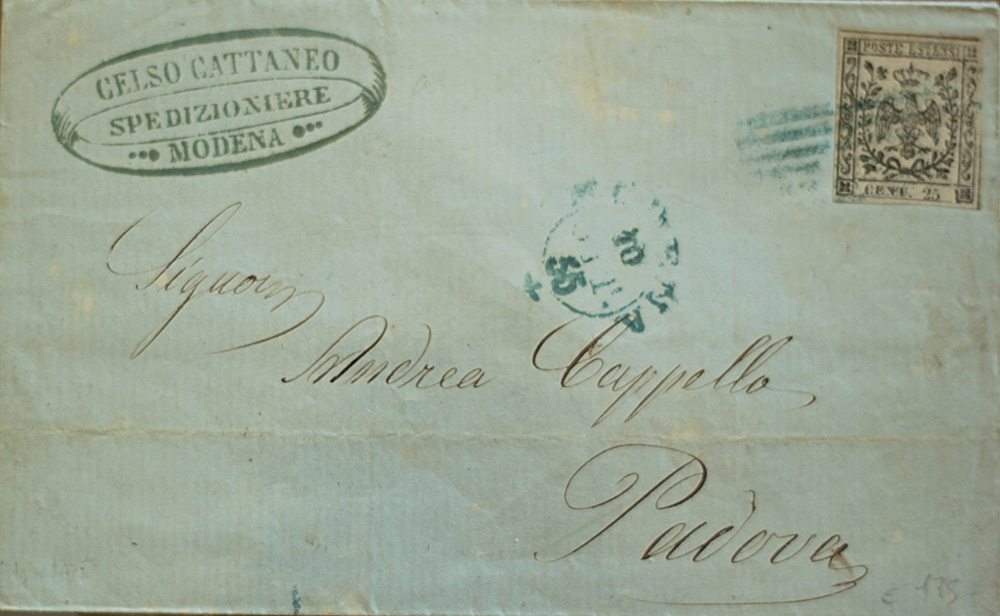 CELSO CATTANEO
SPEDIZIONIERE
MODENA
POSTE ESTENSI
CENT. 25
10
55
Signor
Andrea Cappello
Padova
€ 175